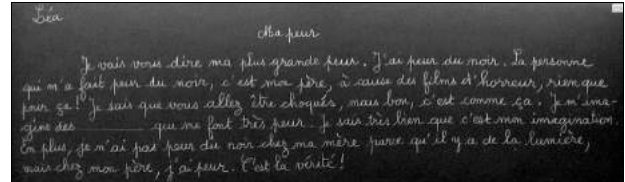 Léa
Ma peur
Je vais vous dire ma plus grande peur. J'ai peur du noir. La personne
qui m'a fait peur du noir, c'est mon père, à cause des films d'horreur, rien que
pour ça ! Je sais que vous allez être choqués, mais bon, c'est comme ça. Je m'ima-
gine des ________ qui me font très peur. Je sais très bien que c'est mon imagination.
En plus, je n'ai pas peur du noir chez ma mère parce qu'il y a de la lumière,
mais chez mon père, j'ai peur. C'est la vérité !